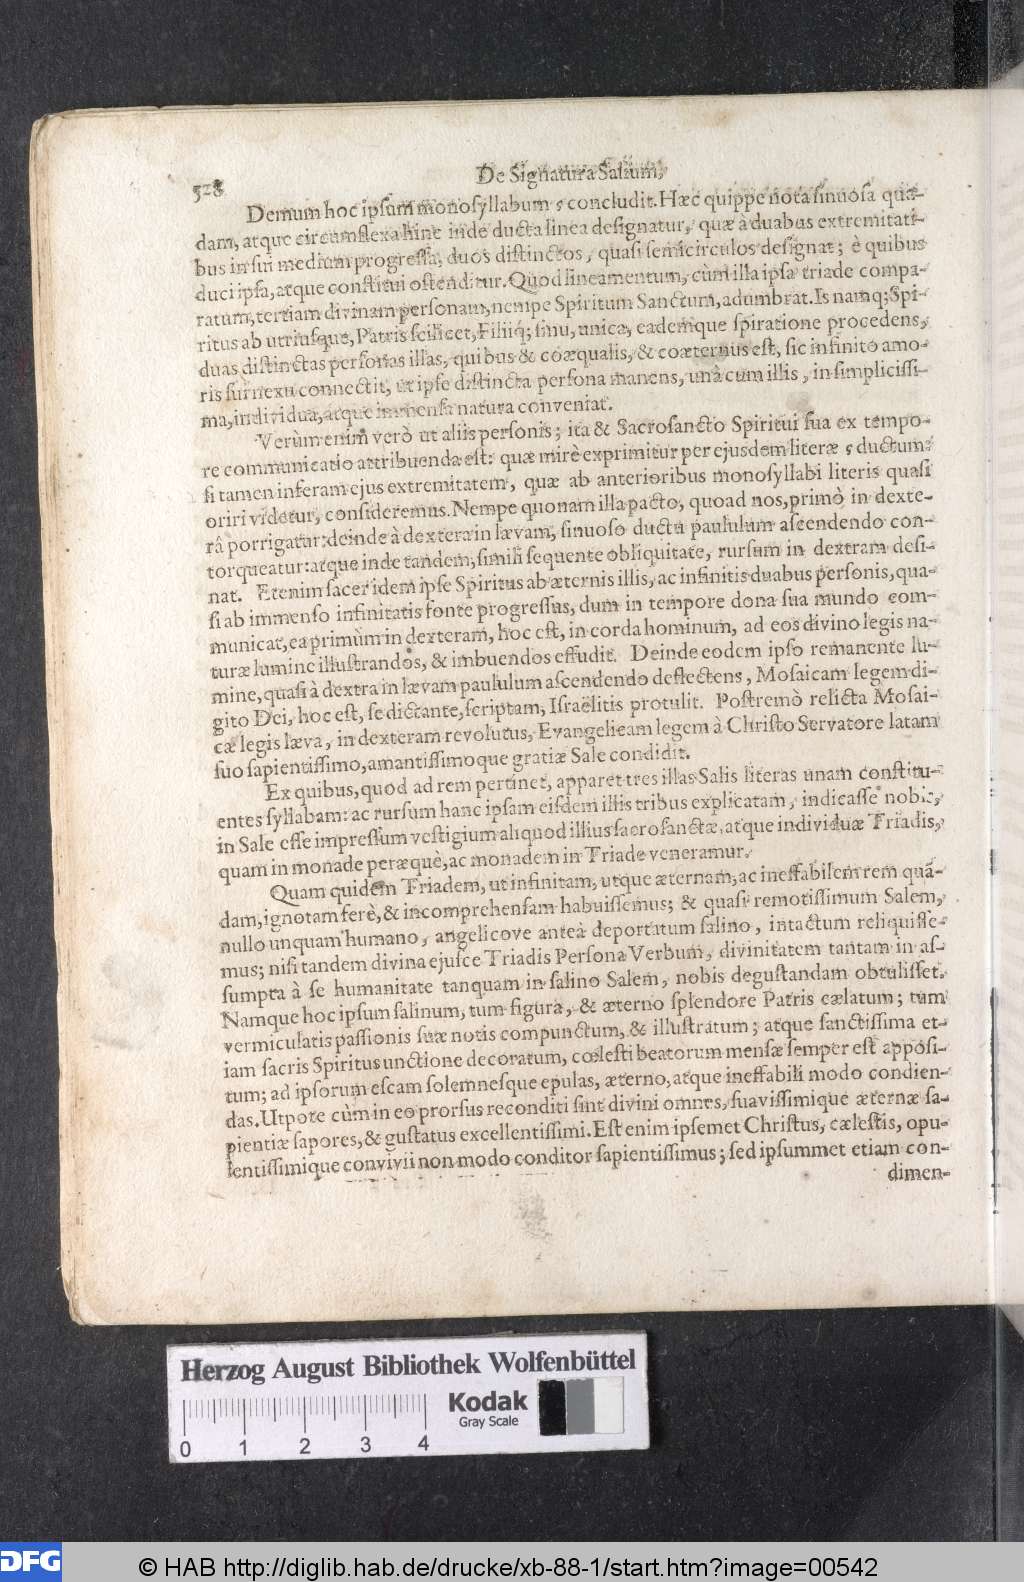 528
De Signatura Salium,
Demum hoc ipsum monosyllabum ς concludit. Hæc quippe nota sinuosa quã-
dam, atque circumflexa hinc inde ducta linea designatur, quæ à duabus extremitati-
bus in sui medium progressa, duos distinctos, quasi semicirculos designat; è quibus
duci ipsa, atque constitui ostenditur. Quod lineamentum, cùm illa ipsa triade compa-
ratum, tertiam divinam personam, nempe Spiritum Sanctum, adumbrat. Is namq; Spi-
ritus ab utriusque, Patris scilicet, Filiiq; sinu, unica, eademque spiratione procedens,
duas distinctas personas illas, quibus & coæqualis, & coæternus est, sic infinito amo-
ris sui nexu connectit, ut ipse distincta persona manens, unà cum illis, in simplicissi-
ma, individua, atque immensa natura conveniat.
Verùm enim verò ut aliis personis; ita & Sacrosancto Spiritui sua ex tempo-
re communicatio attribuenda est: quæ mirè exprimitur per ejusdem literæ ς ductum:
si tamen inferam ejus extremitatem, quæ ab anterioribus monosyllabi literis quasi
oriri videtur, consideremus. Nempe quonam illa pacto, quoad nos, primò in dexte-
râ porrigatur: deinde à dextera in lævam, sinuoso ductu paululum ascendendo con-
torqueatur: atque inde tandem, simili sequente obliquitate, rursum in dextram desi-
nat. Etenim sacer idem ipse Spiritus ab æternis illis, ac infinitis duabus personis, qua-
si ab immenso infinitatis fonte progressus, dum in tempore dona sua mundo com-
municat, ea primùm in dexteram, hoc est, in corda hominum, ad eos divino legis na-
turæ lumine illustrandos, & imbuendos effudit. Deinde eodem ipso remanente lu-
mine, quasi à dextra in lævam paululum ascendendo deflectens, Mosaicam legem di-
gito Dei, hoc est, se dictante, scriptam, Israëlitis protulit. Postremò relicta Mosai-
cæ legis læva, in dexteram revolutus, Evangelicam legem à Christo Servatore latam
suo sapientissimo, amantissimoque gratiæ Sale condidit.
Ex quibus, quod ad rem pertinet, apparet tres illas Salis literas unam constitu-
entes syllabam: ac rursum hanc ipsam eisdem illis tribus explicatam, indicasse nobis,
in Sale esse impressum vestigium aliquod illius sacrosanctæ, atque individuæ Triadis,
quam in monade peræquè, ac monadem in Triade veneramur.
Quam quidem Triadem, ut infinitam, utque æternam, ac ineffabilem rem quã-
dam, ignotam ferè, & incomprehensam habuissemus; & quasi remotissimum Salem,
nullo unquam humano, angelicove anteà deportatum salino, intactum reliquisse-
mus; nisi tandem divina ejusce Triadis Persona Verbum, divinitatem tantam in as-
sumpta à se humanitate tanquam in salino Salem, nobis degustandam obtulisset.
Namque hoc ipsum salinum, tum figura, & æterno splendore Patris cælatum; tum
vermiculatis passionis suæ notis compunctum, & illustratum; atque sanctissima et-
iam sacris Spiritus unctione decoratum, cœlesti beatorum mensæ semper est apposi-
tum; ad ipsorum escam solemnesque epulas, æterno, atque ineffabili modo condien-
das. Utpote cùm in eo prorsus reconditi sint divini omnes, suavissimique æternæ sa-
pientiæ sapores, & gustatus excellentissimi. Est enim ipsemet Christus, cælestis, opu-
lentissimique convivii non modo conditor sapientissimus; sed ipsummet etiam con-
dimen-
Herzog August Bibliothek Wolfenbüttel
Kodak
Gray Scale
0 1 2 3 4
DFG © HAB http://diglib.hab.de/drucke/xb-88-1/start.htm?image=00542